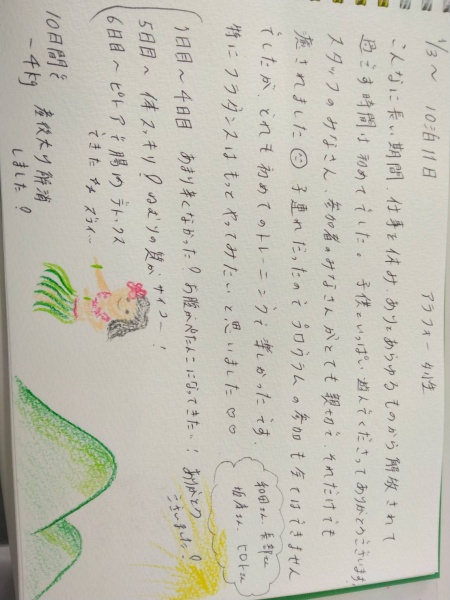 1/3〜 10泊11日
アラフォー 女性
こんなに長い期間、仕事を休み、ありとあらゆるものから解放されて
過ごす時間は初めてでした。子供といっぱい遊んでくださってありがとうございます。
スタッフのみなさん、参加者のみなさんがとても親切で、それだけでも
癒されました☺ 子連れだったのでプログラムの参加も全てはできません
でしたが、どれも初めてのトレーニングで楽しかったです。
特にフラダンスはもっとやってみたいと思いました♡♡
1日目〜4日目 あまり辛くなかった? お腹がぺたんこになってきたい!
5日目〜 体スッキリ? ねむりの質がサイコー!
6日目〜 ピルアと腸めデトックス
できた
10日間で
-4kg 産後太り解消
しました!
ありがとう
ございました!
和田さん
ヒロトさん